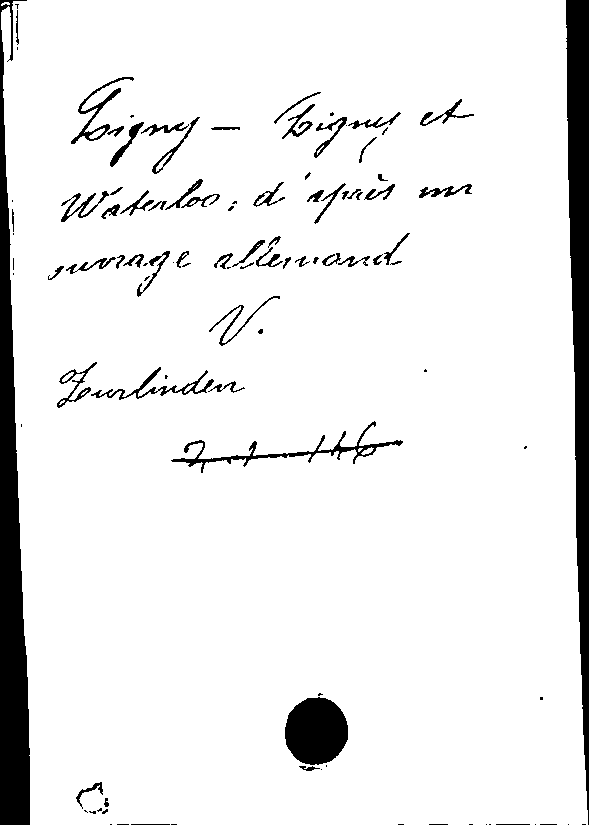 Ligny — Ligny et
Waterloo, d'après un
ouvrage allemand
V.
Zurlinden